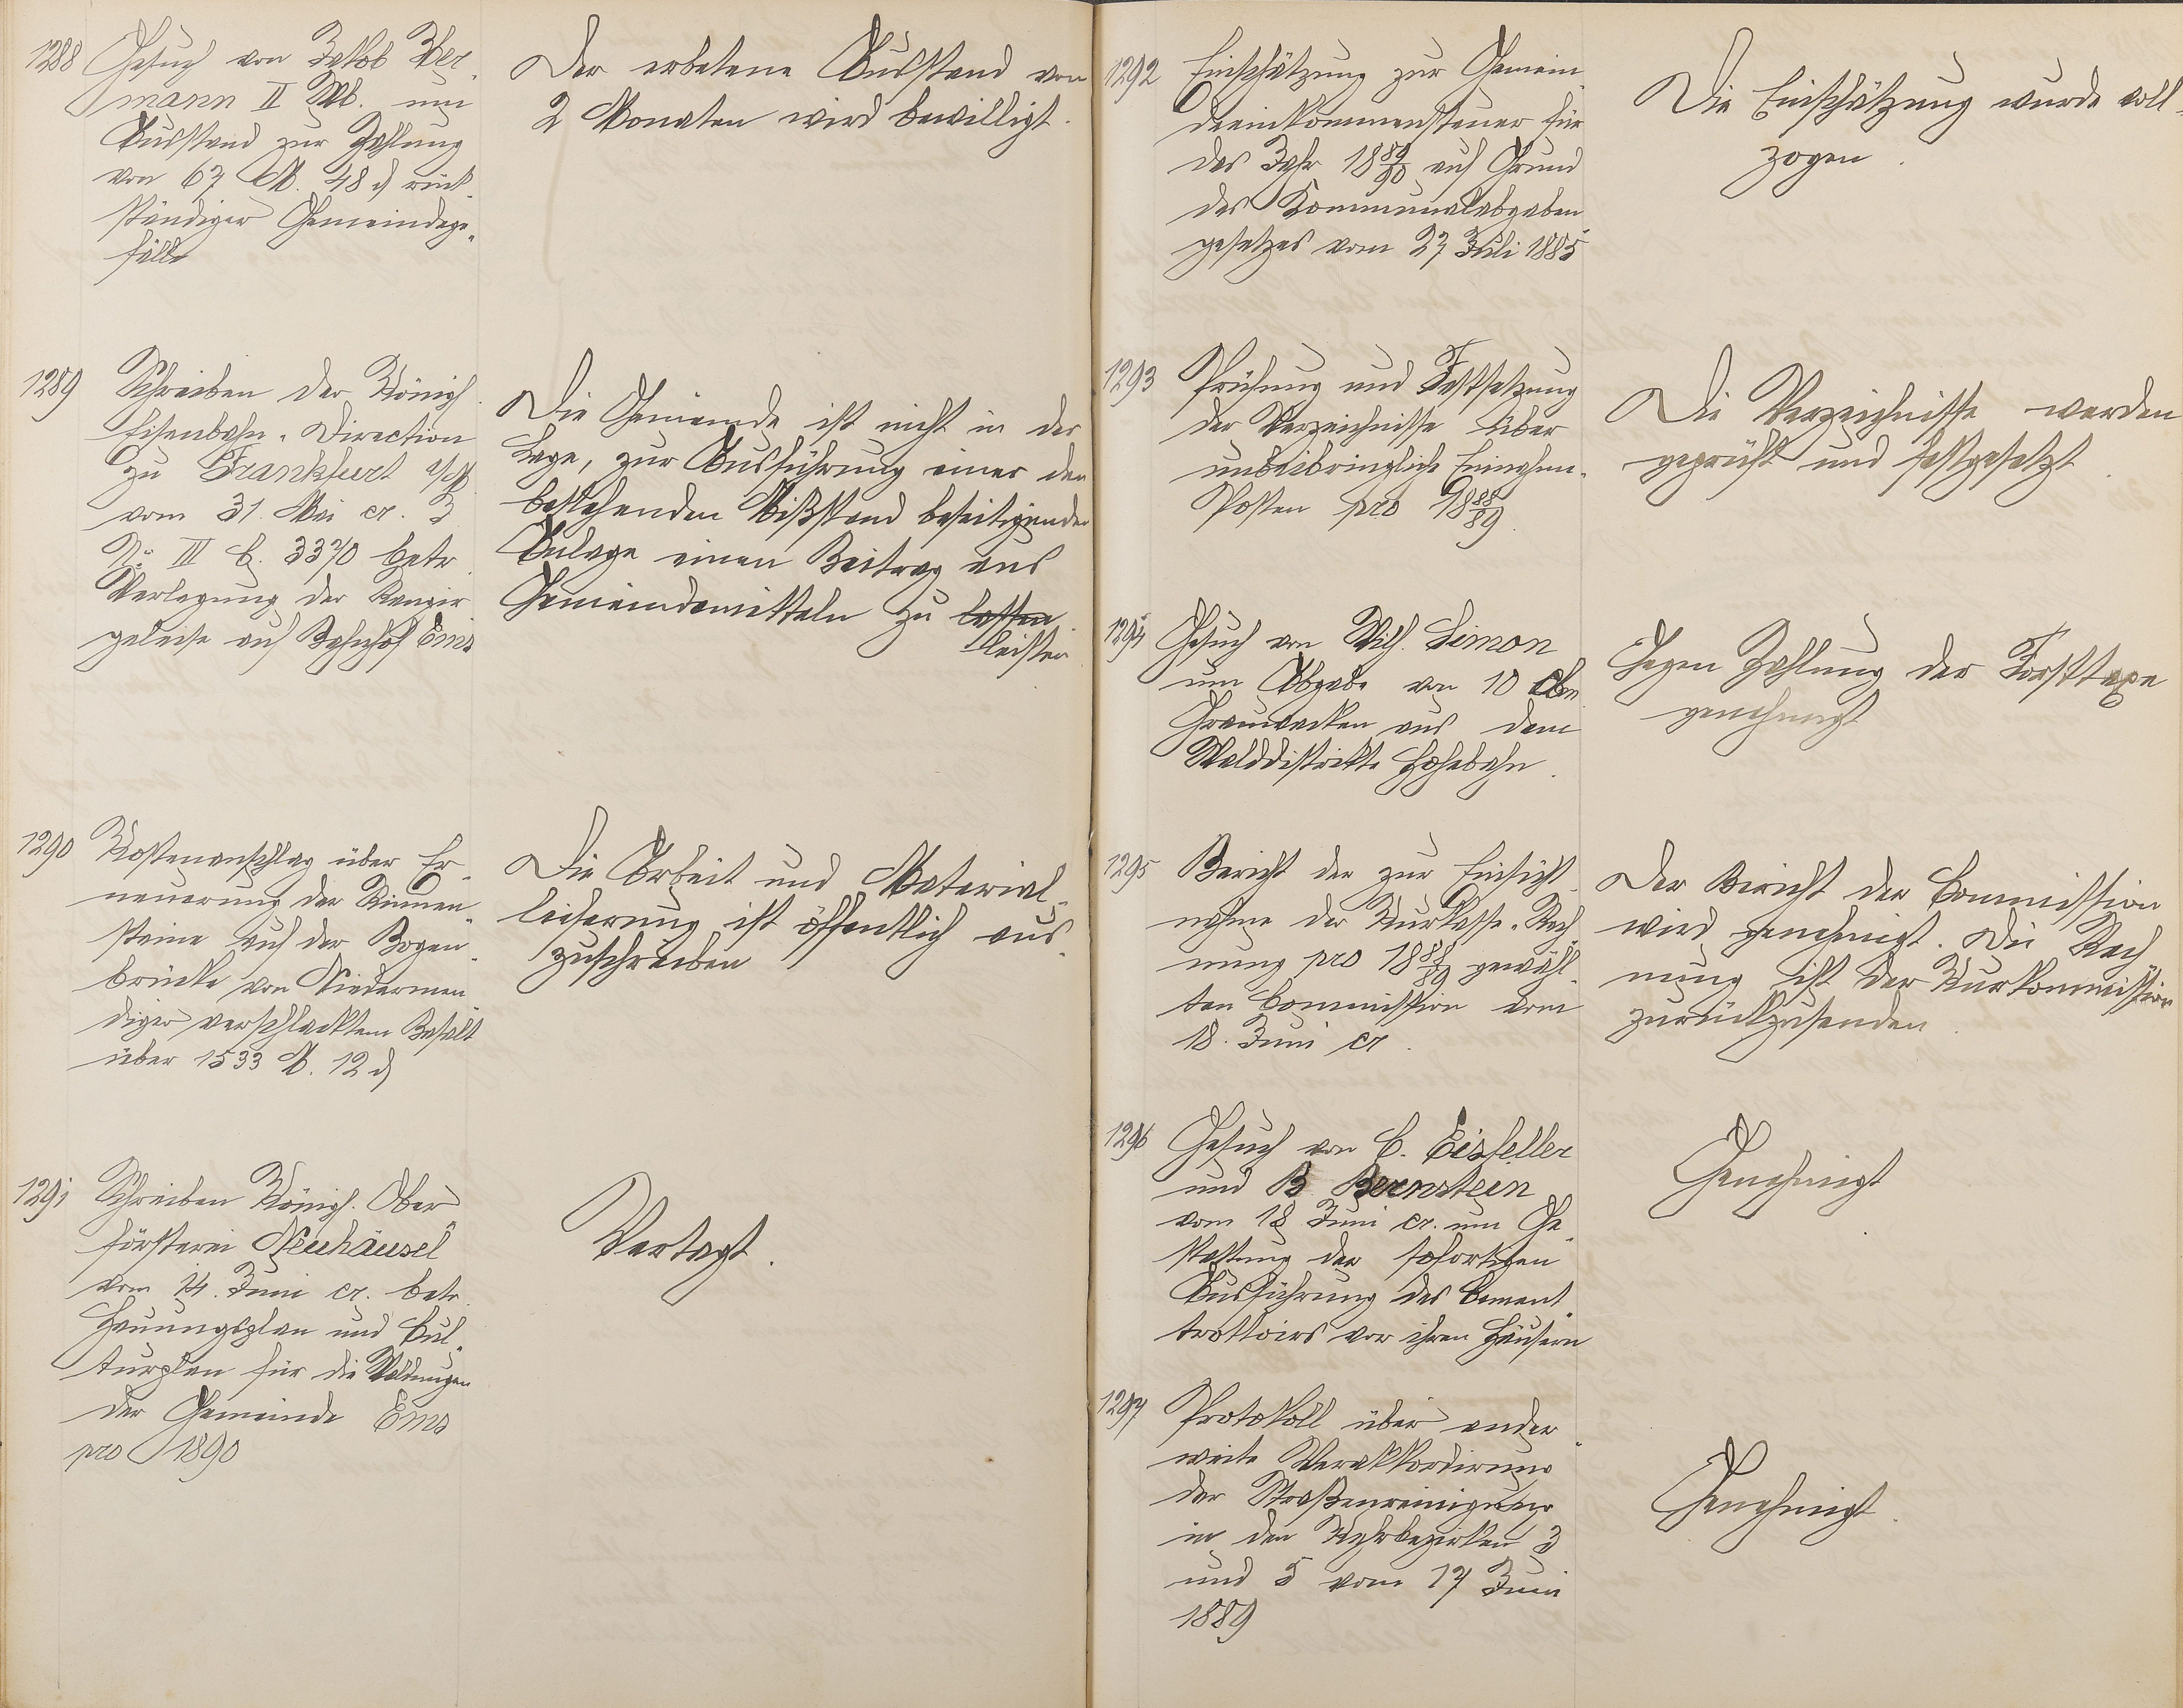 1288 Gesuch von Jakob Her-
mann II Wb. um
Ausstand zur Zahlung
von 67 M. 48 d rück-
ständiger Gemeindege-
fälle
Der erbetene Ausstand von
2 Monaten wird bewilligt.
1289 Schreiben der Königl.
Eisenbahn-Direction
zu Frankfurt a/M
vom 31. Mai cr. J
No. III C. 3370 betr.
Verlegung der Rangir
geleise auf Bahnhof Ems
Die Gemeinde ist nicht in der
Lage, zur Ausführung einer den
bestehenden Mißstand beseitigenden
Anlage einen Beitrag aus
Gemeindemitteln zu lassen.
leisten
1290 Kostenanschlag über Er-
neuerung der Rinnen-
steine auf der Bogen-
brücke von Niedermen-
diger verschlacktem Basalt
über 1533 M. 12 d
Die Arbeit und Material-
lieferung ist öffentlich aus-
zuschreiben
1291 Schreiben Königl. Ober
försterei Neuhäusel
vom 14. Juni cr. betr.
Hauungsplan und Cul-
turplan für die Waldungen
der Gemeinde Ems
pro 1890
Vertagt.
1292 Einschätzung zur Gemein-
deeinkommensteuer für
das Jahr 1889/90 auf Grund
des Kommunalabgaben-
gesetzes vom 27 Juli 1885
Die Einschätzung wurde voll-
zogen.
1293 Prüfung und Festsetzung
der Verzeichnisse über
unbeibringliche Einnahme-
Posten pro 1888/89.
Die Verzeichnisse werden
geprüft und festgesetzt.
1294 Gesuch von Wilh. Simon
um Abgabe von 10 Cbm
Grauwacken aus dem
Walddistrikte Hohebahn.
Gegen Zahlung der Forsttaxe
genehmigt
1295 Bericht der zur Einsicht-
nahme der Kurkasse-Rech-
nung pro 1888/89 gewähl-
ten Commission vom
18. Juni cr.
Der Bericht der Commission
wird genehmigt. Die Rech
nung ist der Kurkommission
zurückzusenden.
1296 Gesuch von C. Eisfeller
und B Bernstein
vom 18 Juni cr. um Ge-
stattung der sofortigen
Ausführung des Cement-
trottoirs vor ihren Häusern
Genehmigt
1297 Protokoll über ander-
weite Verakkordirung
der Straßenreinigung
in den Kehrbezirken 3
und 5 vom 17 Juni
1889
Genehmigt.